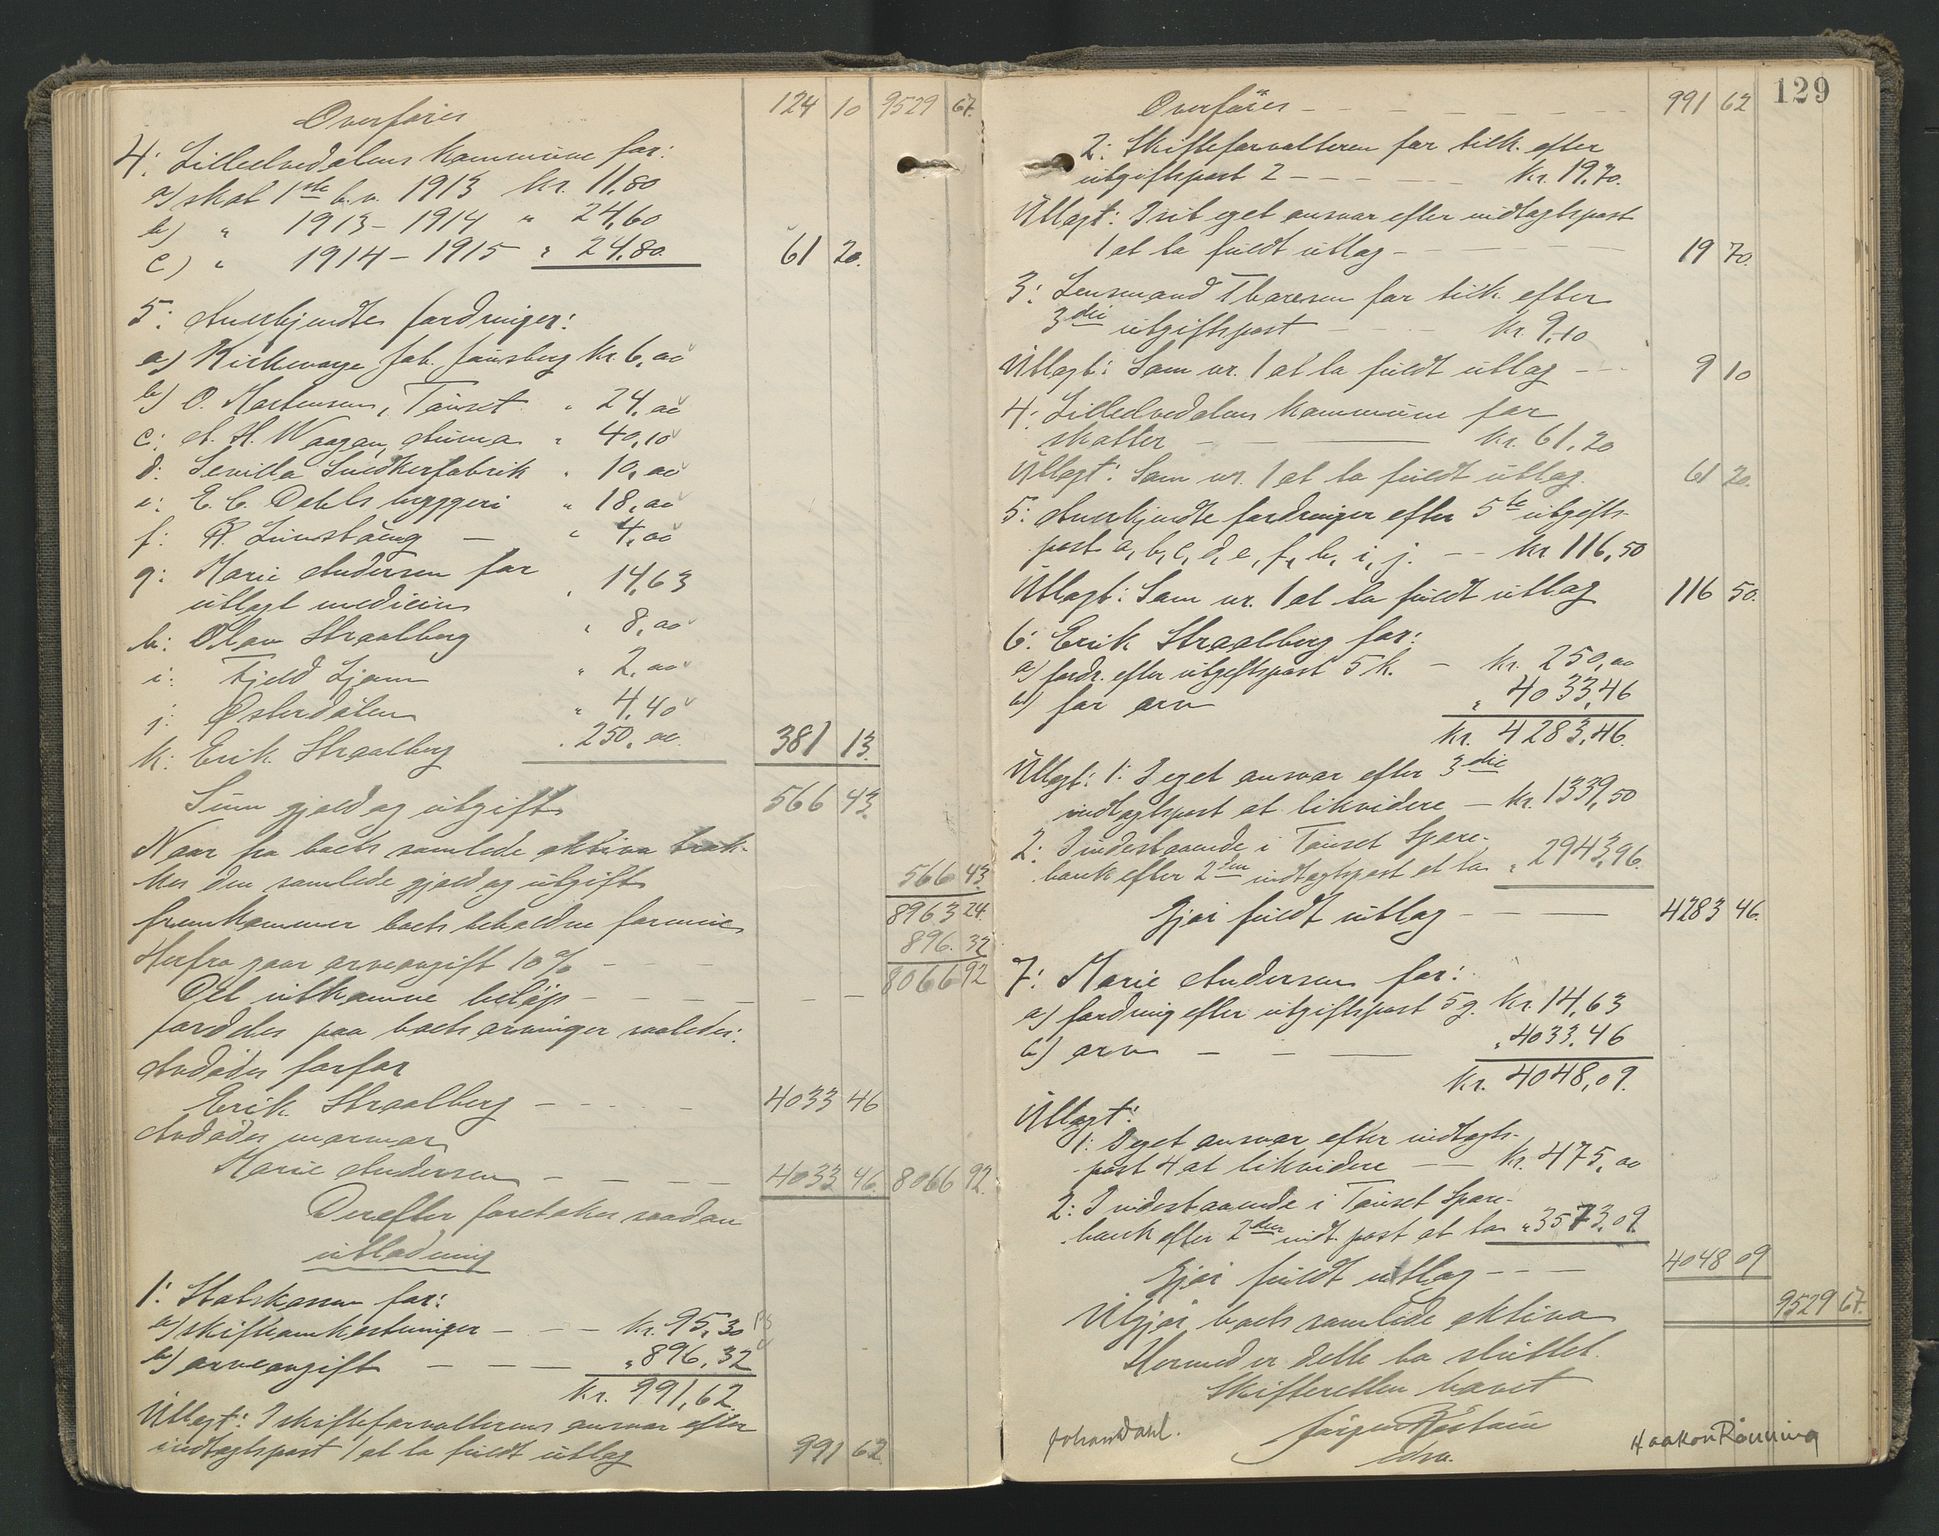 Overføres 124 10 9529 67.
4: Lilleelvedalens kommune for:
a) skat 1ste h.v. 1913 kr. 11,80
b) " 1913-1914 " 24,60
c) " 1914-1915 " 24,80 61 20.
5: Anerkjendte fordringer:
a) Kirkeverge Joh. Jonsberg kr. 6,00
b) O. Mortensen, Tønset " 24,00
c: A. H. Waagan, Auma " 40,10
d: Sevilla Snedkerfabrik " 10,00
e: E. C. Dahls bryggeri " 18,00
f: P. Ljunstäng — " 4,00
g: Marie Andersen for
utlagt medicin " 14,63
h: Olav Straalberg " 8,00
i: Fjeld-Ljom " 2,00
j: Østerdølen " 4,40
k: Erik Straalberg " 250,00 381 13.
Sum gjæld og utgift 566 43.
Naar fra boets samlede aktiva træk-
kes den samlede gjæld og utgift 566 43.
fremkommer boets beholdne formue 8963 24.
Herfra gaar arveavgift 10% - - - 896. 32
Det utkomne beløp - - - - - - 8066 92
fordeles paa boets arvinger saaledes:
Avdødes farfar
Erik Straalberg - - - - 4033 46
Avdødes mormor
Marie Andersen - - - - 4033 46. 8066 92.
Derefter foretokes saadan
utlodning
1: Statskassen for:
a) skifteomkostninger - - - kr. 95,30
b) arveavgift - - - " 896,32
kr. 991,62.
Utlagt: I skifteforvalterens ansvar efter
indtægtspost 1 at ta fuldt utlæg 991 62.
129
Overføres - - - - - - 991 62
2: Skifteforvalteren for tilk. efter
utgiftspost 2 - - - - - kr. 19,70.
Utlagt: I sit eget ansvar efter indtægtspost
1 at ta fuldt utlæg - - - - - 19 70.
3: Lensmand Thoresen for tilk. efter
3die utgiftspost - - - - kr. 9,10
Utlagt: Som nr. 1 at ta fuldt utlæg - - - 9 10
4: Lilleelvedalens kommune for
skatter - - - kr. 61,20
Utlagt: Som nr. 1 at ta fuldt utlæg. 61 20.
5: Anerkjendte fordringer efter 5te utgifts-
post a, b, c, d, e, f, h, i, j. - - kr 116,50
Utlagt: Som nr. 1 at ta fuldt utlæg 116 50.
6: Erik Straalberg for:
a) fordr. efter utgiftspost 5 k. - kr. 250,00
b) for arv " 4033,46
kr. 4283,46.
Utlagt: 1: I eget ansvar efter 3die
indtægtspost at likvidere - kr. 1339,50
2: Indestaaende i Tønset Spare-
bank efter 2den indtægtspost at ta " 2943,96.
Gjør fuldt utlæg - - - 4283 46.
7: Marie Andersen for:
a) fordring efter utgiftspost 5 g. kr. 14,63
b) arv - - - " 4033.46
kr. 4048,09.
Utlagt:
1: I eget ansvar efter indtægts-
post 4 at likvidere - - kr. 475,00
2: Indestaaende i Tønset Spare-
bank efter 2den indt.post at ta " 3573,09.
Gjør fuldt utlæg - - - 4048 09
Utgjør boets samlede aktiva 9529 67.
Hermed er dette bo sluttet.
Skifteretten hævet
Johan Dahl. Haakon Rønning